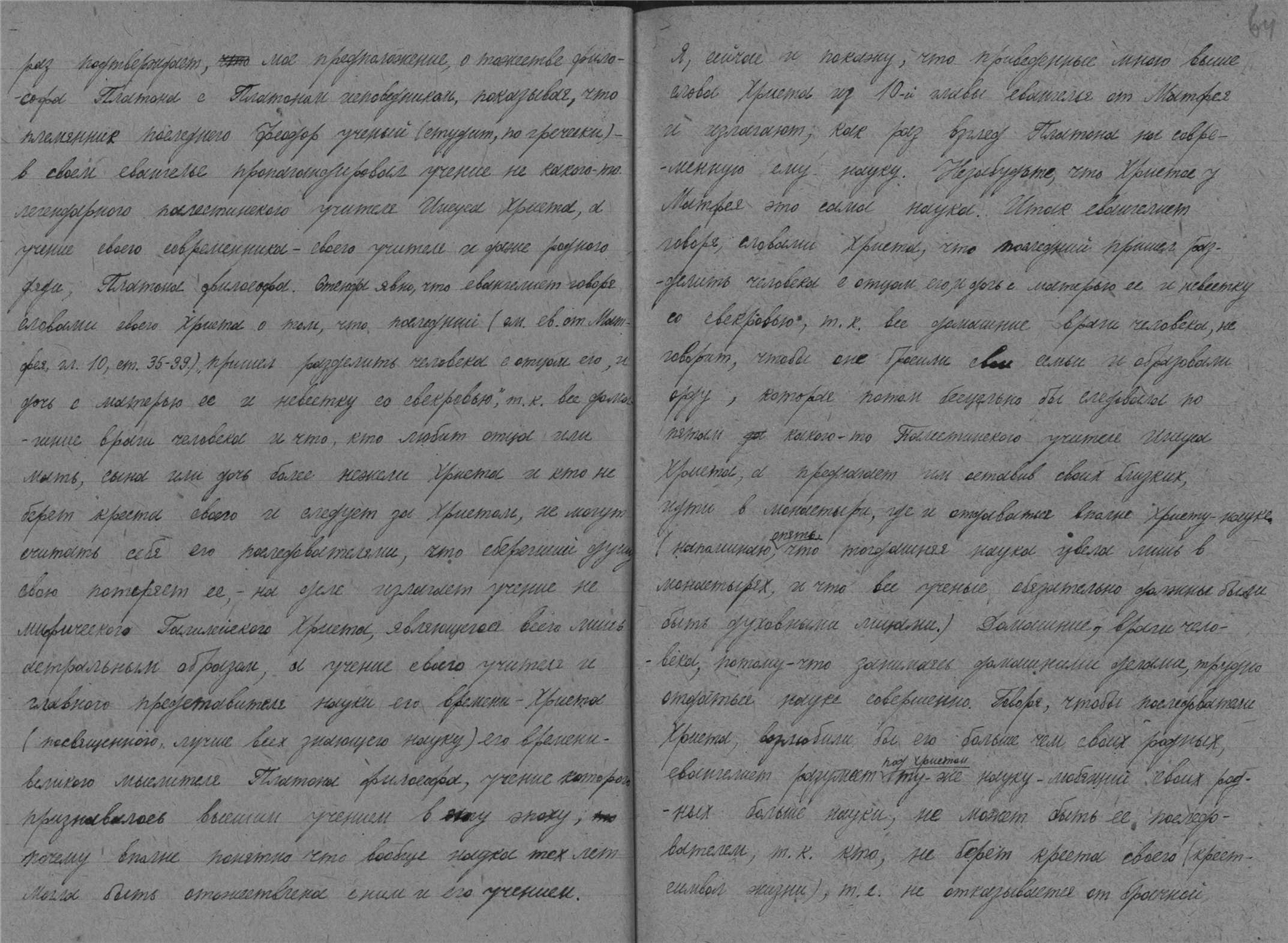 раз подтверждает, что мое предположение, о тожестве фило-
-софа Платона с Платоном исповедником, показывая, что
племянник последнего Феодор ученый (студит, по гречески)-
в своем евангелье пропагандировал учение не какого-то
легендарного палестинского учителя Иисуса Христа, а
учение своего современника - своего учителя и даже родного
дяди, Платона философа. Отсюда явно, что евангелист говоря
словами своего Христа о том, что последний (см. ев. от Мат-
фея, гл. 10, ст. 35-39) пришел разделить человека с отцом его, и
дочь с матерью ее и невестку со свекровью", т.к. все дома-
-шние враги человека и что, кто любит отца или
мать, сына или дочь более нежели Христа и кто не
берет креста своего и следует за Христом, не могут
считать себя его последователями, что сберегший душу
свою потеряет ее, - на деле излагает учение не
мифического Галилейского Христа, являющегося всего лишь
астральным образом, а учение своего учителя и
главного представителя науки его времени - Христа
(посвященного, лучше всех знающего науку) его времени-
великого мыслителя Платона философа, учение которого
признавалось высшим учением в ту эпоху,
почему вполне понятно что вообще наука тех лет
могла быть отожествлена с ним и его учением.
64
Я, сейчас и покажу, что приведенные мною выше
слова Христа из 10-й главы евангелья от Матфея
и излагают, как раз взгляд Платона на совре-
-менную ему науку. Незабудьте, что Христос у
Матфея это сама наука. Итак евангелист
говоря, словами Христа, что последний пришел раз-
-делить человека с отцом его, и дочь с матерью ее и невестку
со свекровью", т.к. все домашние враги человека, не
говорит, чтобы они бросили свои семьи и образовали
орду, которая потом бесцельно бы следовала по
пятам какого-то Палестинского учителя Иисуса
Христа, а предлагает им оставив своих близких,
идти в монастыри, где и отдаваться вполне Христу-науке
(напоминаю, опять что тогдашняя наука цвела лишь в
монастырях, и что все ученые обязательно должны были
быть духовными лицами.) Домашние, враги чело-
-века, потому-что занимаясь домашними делами, трудно
отдаться науке совершенно. Говоря, чтобы последователи
Христа, возлюбили бы его больше чем своих родных,
евангелист разумеет под Христом ту-же науку - любящий своих род-
-ных больше науки, не может быть ее последо-
вателем, т.к. кто, не берет креста своего (крест-
символ жизни), т.е. не отказывается от брачной